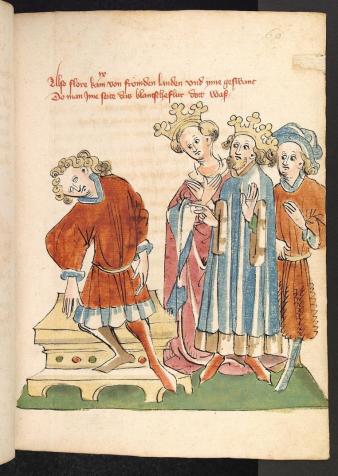 Also flore kam von fromden landen vnd jme geswant
Do man jme seite das blantscheflur dott was